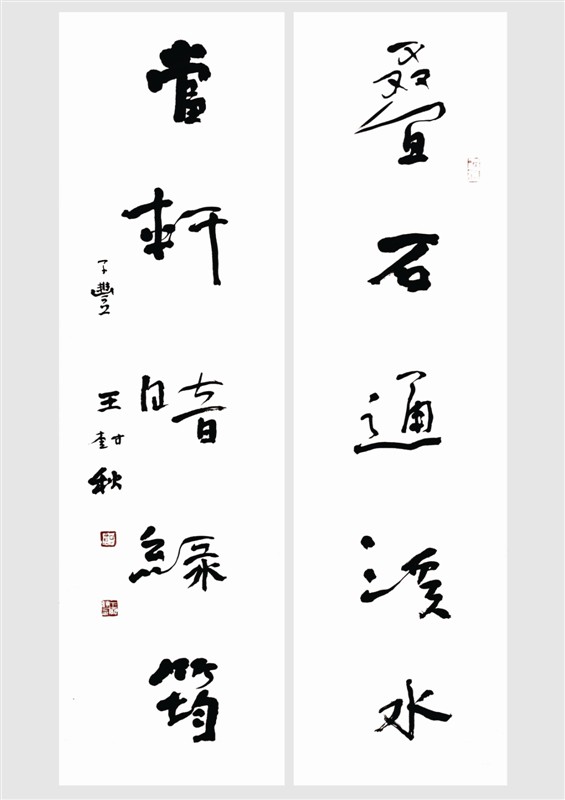 疊石通溪水
當軒暗綠筠
子豐
王封秋